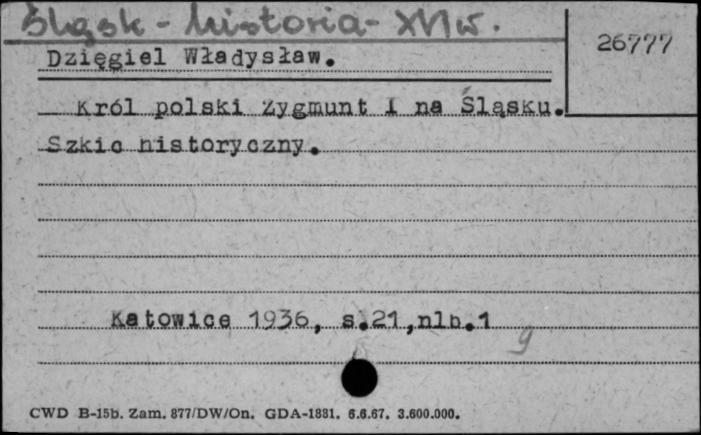 Śląsk - historia - XVI w.
26777
Dzięgiel Władysław.
Król polski Zygmunt I na Śląsku.
Szkic historyczny.
Katowice 1936, s.21,nlb.1
g
CWD B-15b. Zam. 877/DW/On. GDA-1881. 6.6.67. 3.600.000.